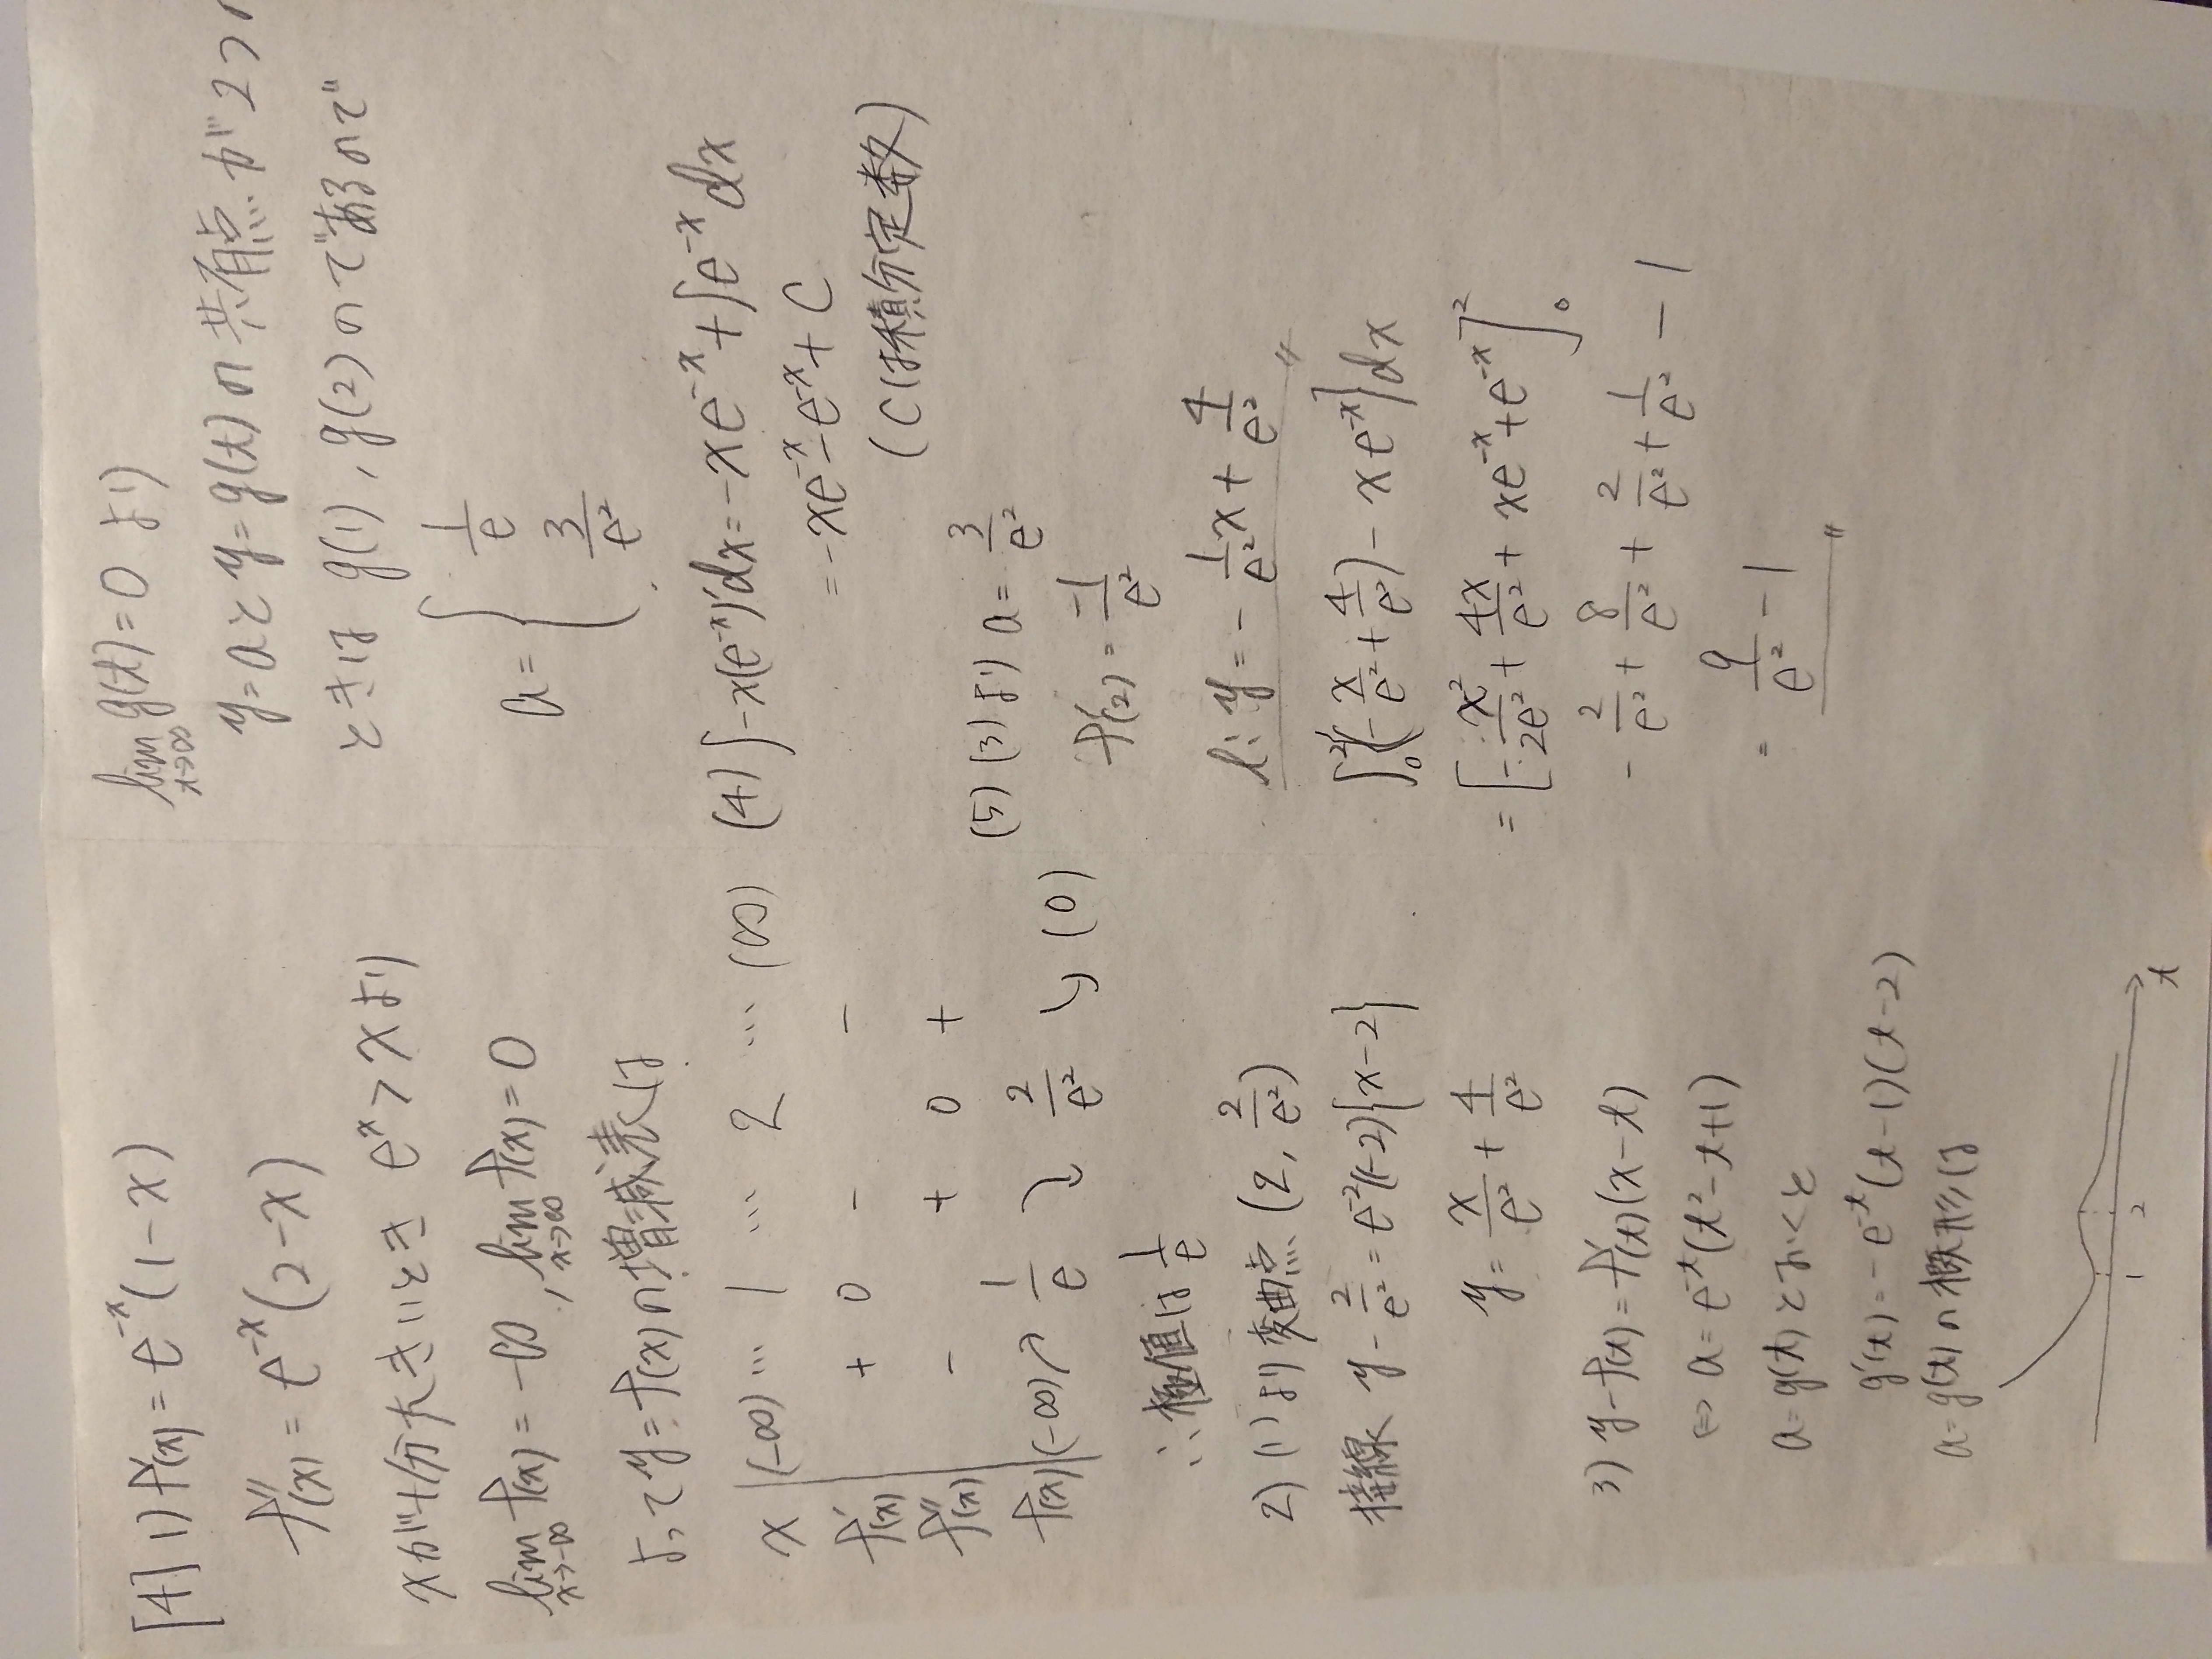 [4] 1) f'(x) = e^{-x}(1-x)
f''(x) = e^{-x}(2-x)
xが十分大きいとき e^x > x より
lim_{x→-∞} f(x) = -∞, lim_{x→∞} f(x) = 0
よって y = f(x) の増減表は
x (-∞) … 1 … 2 … (∞)
f'(x) + 0 - -
f''(x) - + 0 +
f(x) (-∞) ↗ 1/e ↘ 2/e² ↘ (0)
∴ 極値は 1/e
2) (1)より 変曲点 (2, 2/e²)
接線 y - 2/e² = e^{-2}(-2){x-2}
y = x/e² + 4/e²
3) y - f(t) = f'(t)(x-t)
⇔ a = e^{-t}(t²-t+1)
a = g(t) とおくと
g'(t) = -e^{-t}(t-1)(t-2)
a = g(t) の概形は
1 2 t
lim_{t→∞} g(t) = 0 より
y = a と y = g(t) の共有点が2つの
ときは g(1), g(2) のであるので
a = { 1/e
3/e²
(4) ∫-x(e^{-x})'dx = -xe^{-x} + ∫e^{-x}dx
= -xe^{-x} - e^{-x} + C
(Cは積分定数)
(5) (3)より a = 3/e²
f'(2) = -1/e²
l: y = -1/e² x + 4/e²
∫_0^2 {(-x/e² + 4/e²) - xe^{-x}}dx
= [-x²/2e² + 4x/e² + xe^{-x} + e^{-x}]_0^2
- 2/e² + 8/e² + 2/e² + 1/e² - 1
= 9/e² - 1